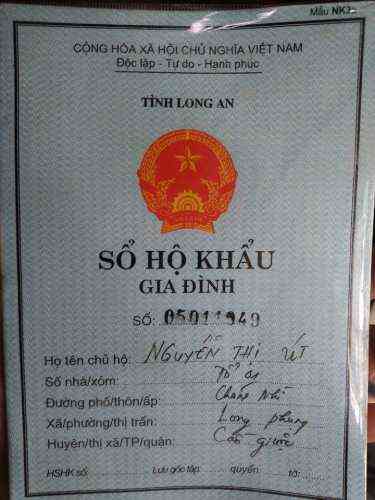 Mẫu NK3
CỘNG HÒA XÃ HỘI CHỦ NGHĨA VIỆT NAM
Độc lập - Tự do - Hạnh phúc
TỈNH LONG AN
SỔ HỘ KHẨU
GIA ĐÌNH
SỐ: 05011949
Họ tên chủ hộ: NGUYỄN THỊ ÚT
Số nhà/xóm: Tổ
Đường phố/thôn/ấp:
Xã/phường/thị trấn: Long phụng
Huyện/thị xã/TP/quận: Cần giuộc
HSHK số: Lưu góc tập: quyển: tờ: